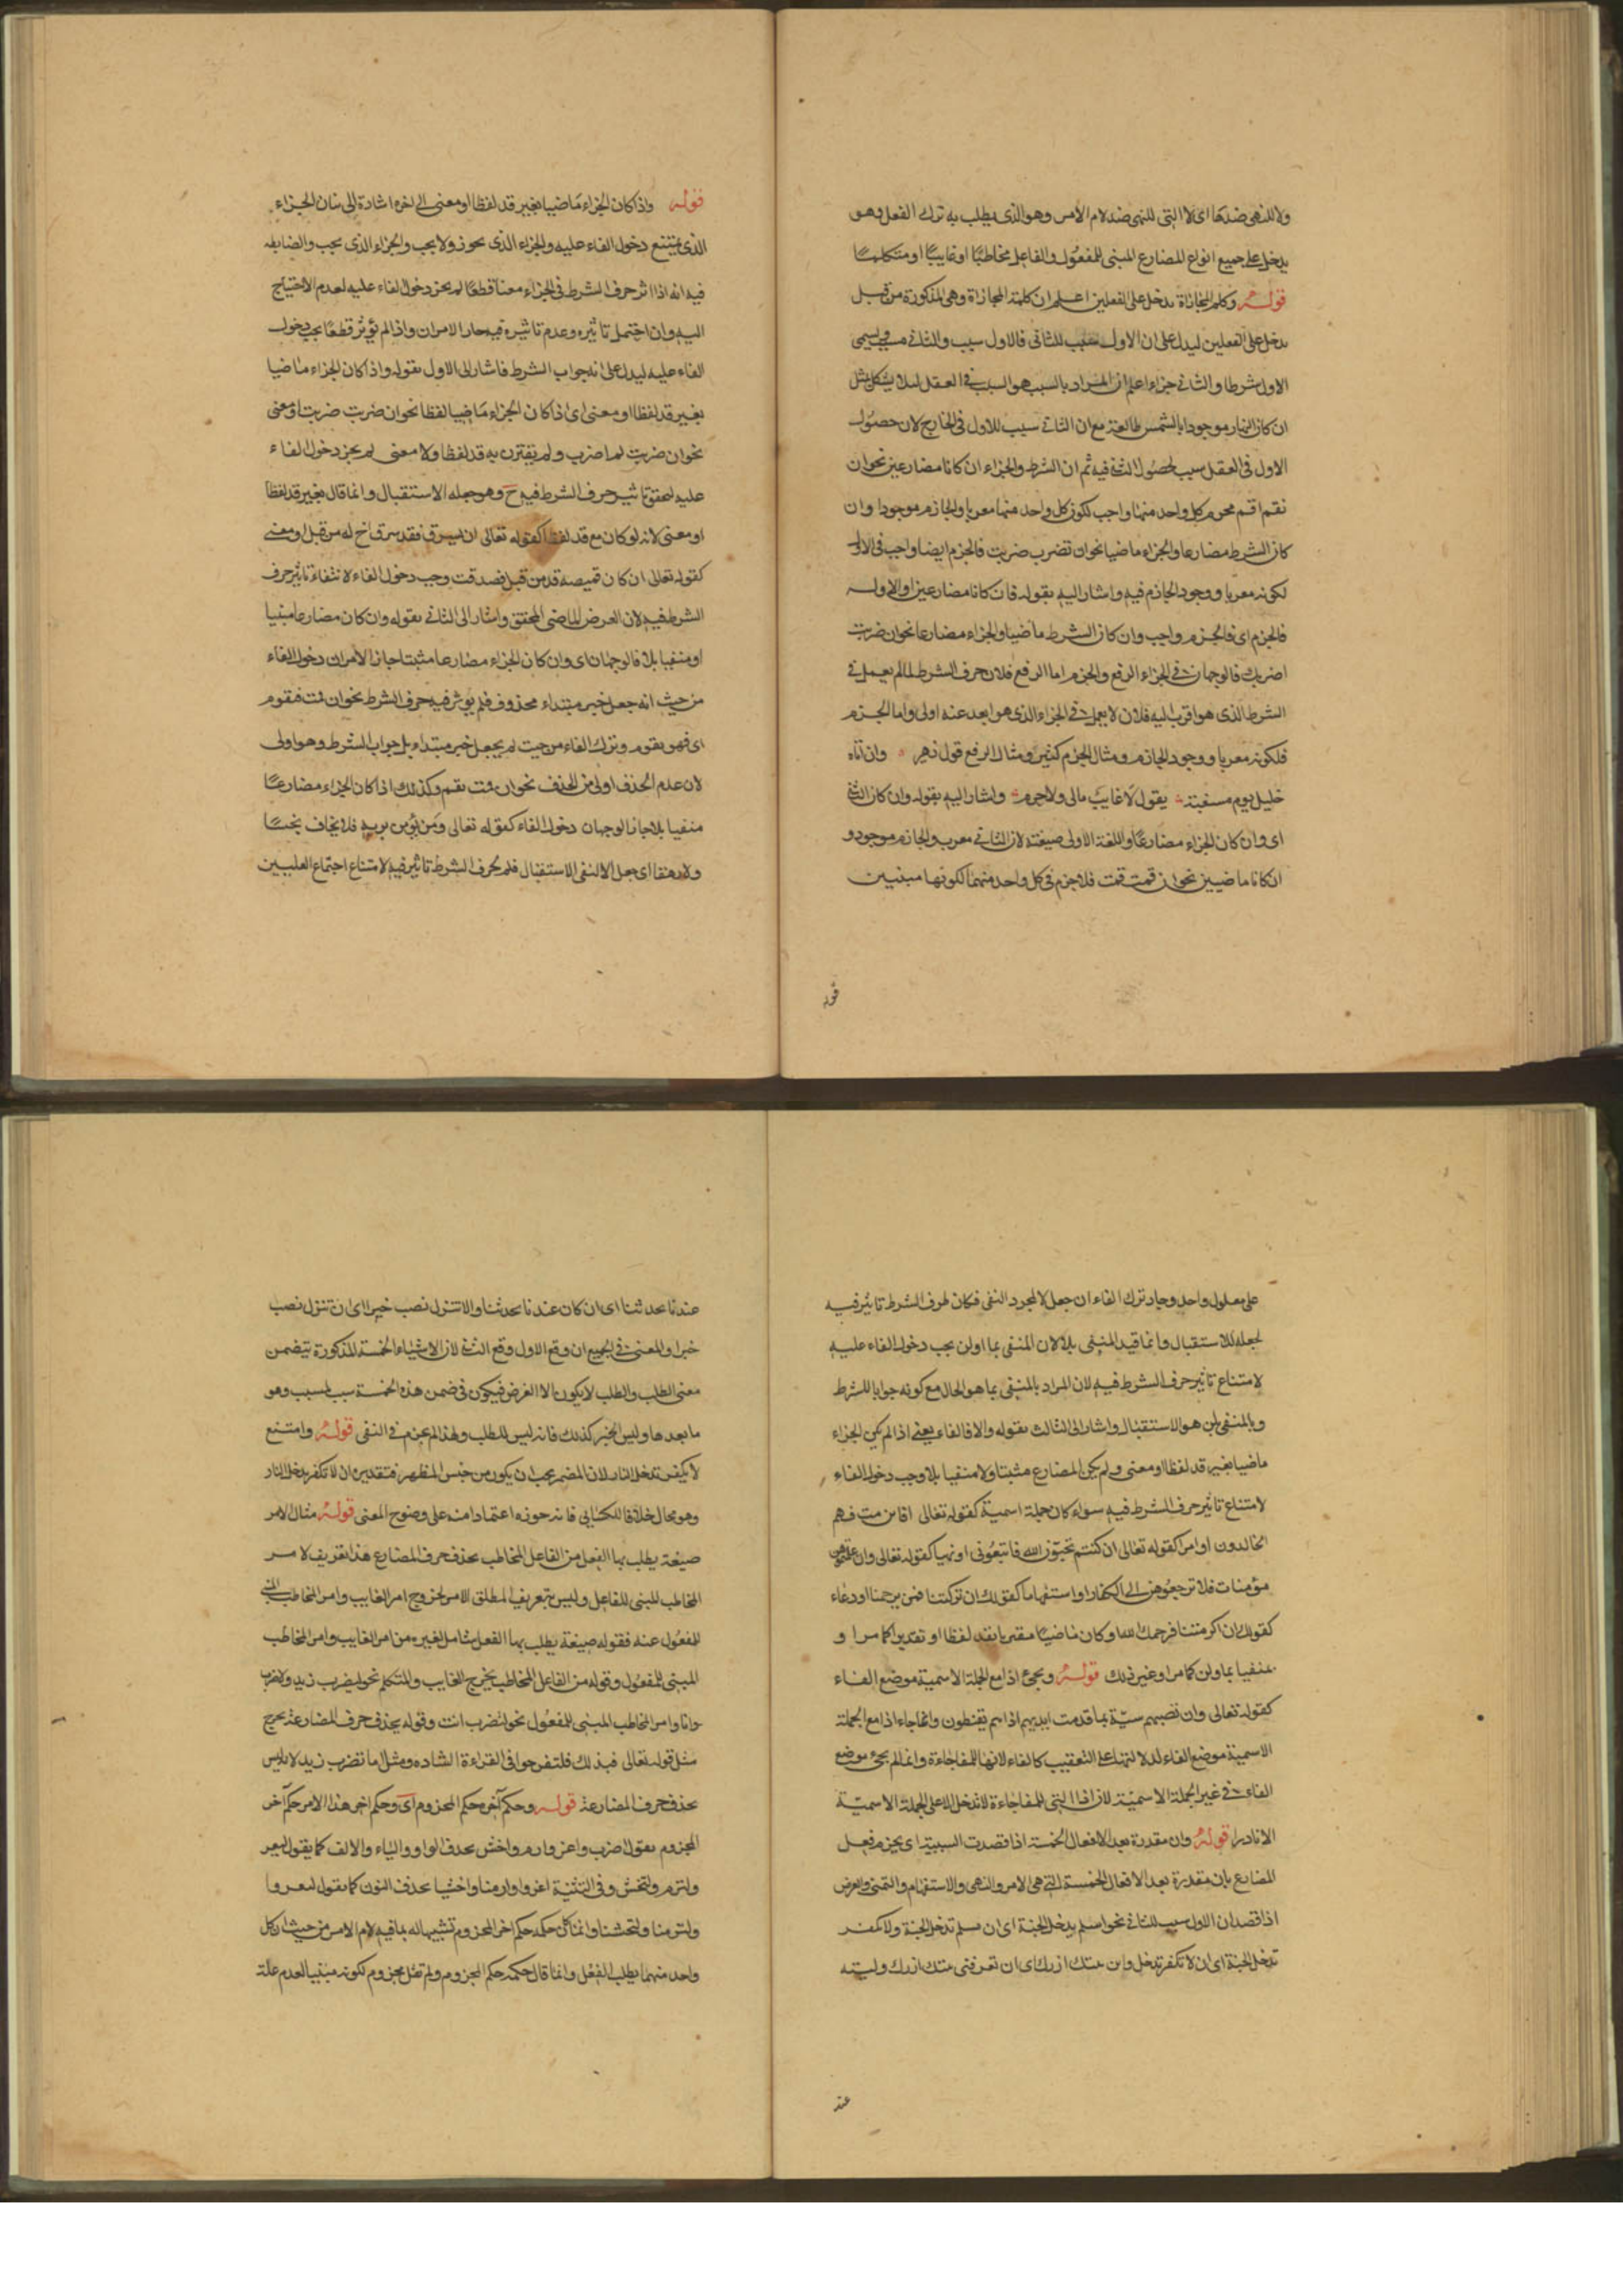 ولا للنهى ضدها اى لا التى للنهى ضد لام الامر وهو الذى يطلب به ترك الفعل وهو
يدخل على جميع انواع المضارع المبنى للمفعول والفاعل مخاطبًا او غايبًا او متكلمًا
قوله وكلم المجازاة تدخل على الفعلين اعلم ان كلمة المجازاة وهى المذكورة من قبل
تدخل على الفعلين ليدل على ان الاول سبب للثانى فالاول سبب والثانى مسبب ويسمى
الاول شرطا والثانى جزاء اعلم ان المراد بالسبب هو السبب فى العقل لئلا يشكل بمثل
ان كان النهار موجودا فالشمس طالعة مع ان الثانى سبب للاول فى الخارج لان حصول
الاول فى العقل سبب لحصول الثانى فيه ثم ان الشرط والجزاء ان كانا مضارعين نحو ان
تقم اقم فجزم كل واحد منهما واجب لكون كل واحد منهما معربا والجازم موجودا وان
كان الشرط مضارعا والجزاء ماضيا نحو ان تضرب ضربت فالجزم ايضا واجب فى الاول
لكونه معربا ووجود الجازم فيه واشار اليه بقوله فان كانا مضارعين او الاول
فالجزم اى فالجزم واجب وان كان الشرط ماضيا والجزاء مضارعا نحو ان ضربت
اضربك فالوجهان فى الجزاء الرفع والجزم اما الرفع فلان حرف الشرط لما لم يعمل فى
الشرط الذى هو اقرب اليه فلان لا يعمل فى الجزاء الذى هو ابعد عنه اولى واما الجزم
فلكونه معربا ووجود الجازم ومثال الجزم كثير ومثال الرفع قول زهير وان اتاه
خليل يوم مسغبة يقول لا غايب مالى ولا حرم واشار اليه بقوله وان كان الثانى
اى وان كان الجزاء مضارعًا واللغة الاولى صيغته لان الثانى معرب والجازم موجود و
ان كانا ماضيين نحو ان قمت قمت فلا جزم فى كل واحد منهما لكونهما مبنيين
قوله
قوله واذا كان الجزاء ماضيا بغير قد لفظا او معنى الى اخره اشارة الى بيان الجزاء
الذى يمتنع دخول الفاء عليه والجزاء الذى يجوز ولا يجب والجزاء الذى يجب والضابطه
فيه انه اذا اثر حرف الشرط فى الجزاء معنا قطعًا لم يجز دخول الفاء عليه لعدم الاحتياج
اليه وان احتمل تاثيره وعدم تاثيره فيه جاز الامران واذا لم يؤثر قطعًا يجب دخول
الفاء عليه ليدل على انه جواب الشرط فاشار الى الاول بقوله واذا كان الجزاء ماضيا
بغير قد لفظا او معنى اى اذا كان الجزاء ماضيا لفظا نحو ان ضربت ضربت او معنى
نحو ان ضربت لم اضرب ولم يقترن به قد لفظا ولا معنى لم يجز دخول الفاء
عليه لتحقق تاثير حرف الشرط فيه ح وهو جعله الاستقبال وانما قال بغير قد لفظا
او معنى لانه لو كان مع قد لفظا كقوله تعالى ان يسرق فقد سرق اخ له من قبل او معنى
كقوله تعالى ان كان قميصه قد من قبل فصدقت وجب دخول الفاء لانتفاء تاثير حرف
الشرط فيه لان الغرض الماضى المحقق واشار الى الثانى بقوله وان كان مضارعا مثبتا
او منفيا بلا فالوجهان اى وان كان الجزاء مضارعا مثبتا جاز الامران دخول الفاء
من حيث انه جعل خبر مبتداء محذوف فلم يؤثر فيه حرف الشرط نحو ان قمت فيقوم
اى فهو يقوم وترك الفاء من حيث لم يجعل خبر مبتداء بل جواب الشرط وهو اولى
لان عدم الحذف اولى من الحذف نحو ان قمت يقم وكذلك اذا كان الجزاء مضارعًا
منفيا بلا جاز الوجهان دخول الفاء كقوله تعالى ومن يؤمن بربه فلا يخاف بخسًا
ولا رهقا اى جعل لا لنفى الاستقبال فلم لحرف الشرط تاثير فيه لامتناع اجتماع العلتين
على معلول واحد وجاز ترك الفاء ان جعل لا لمجرد النفى فكان لحرف الشرط تاثير فيه
لجعله للاستقبال وانما قيد المنفى بلا لان المنفى بما او لن يجب دخول الفاء عليه
لامتناع تاثير حرف الشرط فيه لان المراد بالمنفى بما هو الحال مع كونه جوابا للشرط
وبالمنفى بلن هو الاستقبال واشار الى الثالث بقوله والا فالفاء يعنى اذا لم يكن الجزاء
ماضيا بغير قد لفظا او معنى ولم يكن المضارع مثبتا ولا منفيا بلا وجب دخول الفاء
لامتناع تاثير حرف الشرط فيه سواء كان جملة اسمية كقوله تعالى افان مت فهم
الخالدون او امرا كقوله تعالى ان كنتم تحبون الله فاتبعونى او نهيا كقوله تعالى وان علمتموهن
مؤمنات فلا ترجعوهن الى الكفار او استفهاما كقولك ان تركتنا فمن يرحمنا او دعاء
كقولك ان اكرمتنا فرحمك الله او كان ماضيًا مقترنا بقد لفظا او تقديرا كما مر او
منفيا بما ولن كما مر او غير ذلك قوله ويجئ اذا مع الجملة الاسمية موضع الفاء
كقوله تعالى وان تصبهم سيّة بما قدمت ايديهم اذا هم يقنطون وانما جاء اذا مع الجملة
الاسمية موضع الفاء لدلالتها على التعقيب كالفاء لانها للمفاجاءة وانما لم يجئ موضع
الفاء فى غير الجملة الاسميّة لان اذا التى للمفاجاءة لا تدخل الا على الجملة الاسميّة
الا نادرا قوله وان مقدرة بعد الافعال الخمسة اذا قصدت السببية اى يجزم فعل
المضارع بان مقدرة بعد الافعال الخمسة التى هى الامر والنهى والاستفهام والتمنى والعرض
اذا قصد ان الاول سبب للثانى نحو اسلم تدخل الجنة اى ان تسلم تدخل الجنة ولا تكفر
تدخل الجنة اى ان لا تكفر تدخل واين بيتك ازرك اى ان تعرفنى بيتك ازرك وليته
عند
عندنا يحدثنا اى ان كان عندنا يحدثنا والا تنزل تصب خيرا اى ان تنزل تصب
خيرا والمعنى فى الجميع ان وقع الاول وقع الثانى لان الاشياء الخمسة المذكورة يتضمن
معنى الطلب والطلب لا يكون الا الغرض فيكون فى ضمن هذه الخمسة سبب لمسبب وهو
ما بعدها وليس الخبر كذلك فانه ليس للطلب ولهذا لم يجزم فى النفى قوله وامتنع
لا تكفر تدخل النار لان المضمر يجب ان يكون من جنس المظهر فتقديره ان لا تكفر تدخل النار
وهو محال خلافا للكسائى فانه جوزه اعتمادا منه على وضوح المعنى قوله مثال الامر
صيغة يطلب بها الفعل من الفاعل المخاطب بحذف حرف المضارع هذا تعريف لامر
المخاطب المبنى للفاعل وليس بتعريف لمطلق الامر لخروج امر الغايب وامر المخاطب المبنى
للمفعول عنه فقوله صيغة يطلب بها الفعل شامل لغيره من امر الغايب وامر المخاطب
المبنى للمفعول وقوله من الفاعل المخاطب يخرج الغايب والمتكلم نحو ليضرب زيد ولاضرب
انا وامر المخاطب المبنى للمفعول نحو لتضرب انت وقوله بحذف حرف المضارعة يخرج
مثل قوله تعالى فبذلك فلتفرحوا فى القراءة الشاذه ومثل ما تضرب زيد لا بليس
بحذف حرف المضارعة قوله وحكم آخره حكم المجزوم اى وحكم اخر هذا الامر حكم آخر
المجزوم تقول اضرب واغز وارم واخش بحذف الواو والياء والالف كما يقول لم يغز
ولم ترم ولم تخش وفى التثنية اغزوا وارميا واخشيا بحذف النون كما تقول لم تغزوا
ولم ترميا ولم تخشيا وانما كان حكمه حكم اخر المجزوم تشبيها له بما فيه لام الامر من حيث ان كل
واحد منهما يطلب الفعل وانما قال حكمه حكم المجزوم ولم تقل مجزوم لكونه مبنيا لعدم علة